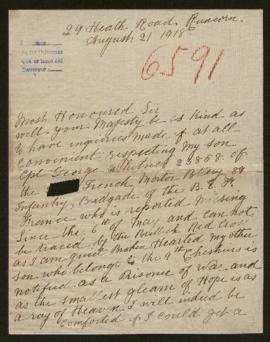 29 Heath Road, Runcorn.
August 21 1918
6591
Most Honoured Sir
will your Majesty be so Kind as
to have inquiries made if at all
convenient respecting my son
Cpl George Whitby 22858 of
the French Mortar Battery 89
Infantry Bridgade of the B.E.F.
France who is reported missing
Since the of May and can not
be traced by the British Red Cross
as I am quiet Broken Hearted my other
son who belongs to the 9th Cheshires is
notified as a Prisoner of War and
as the smallest gleam of Hope is as
a ray of Heaven I will indeed be
Comforted if I could get a